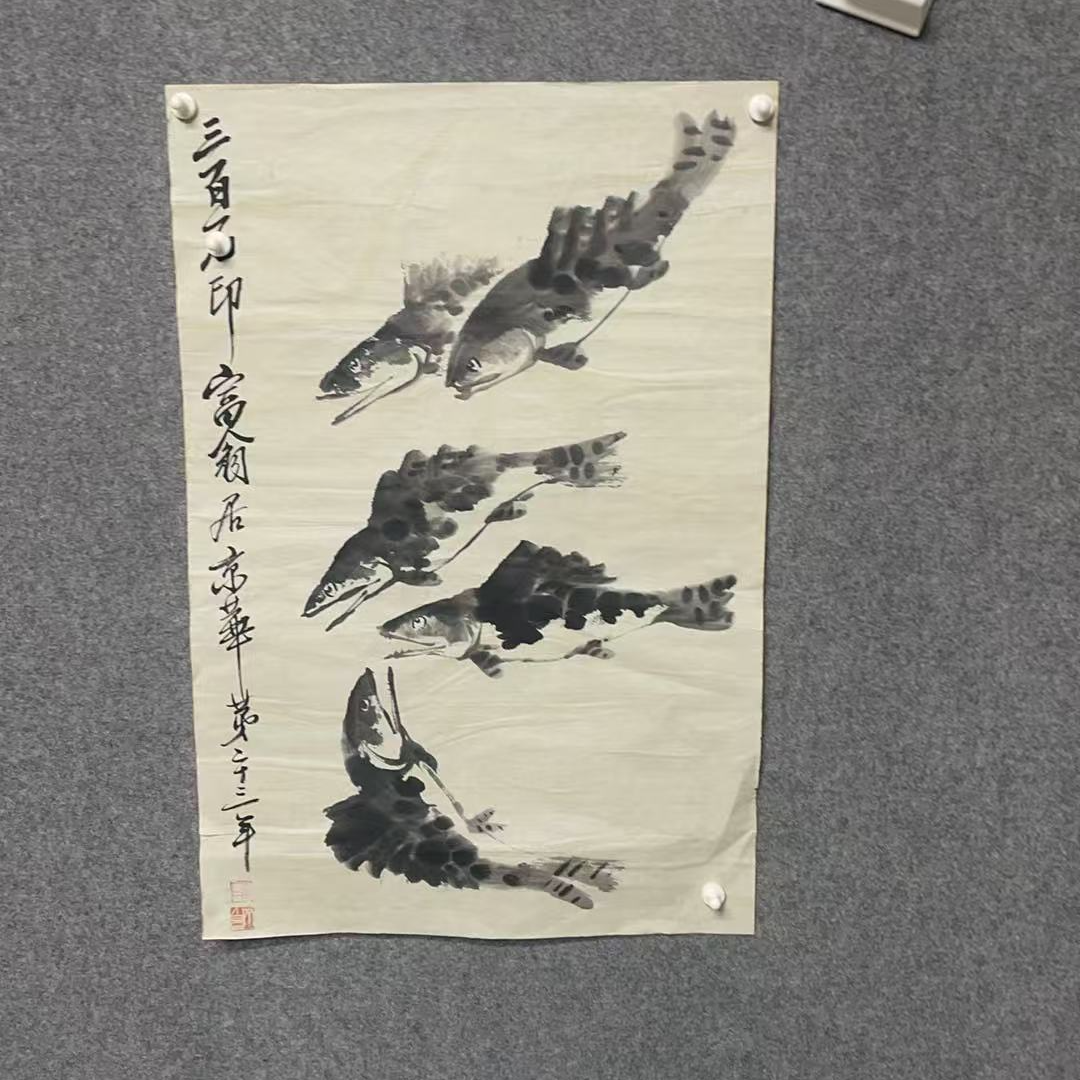 三百石印富翁居京華第二十三年